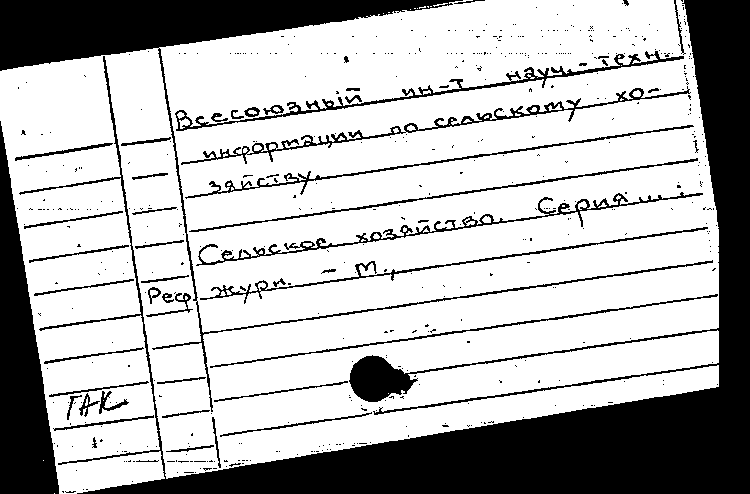 Всесоюзный ин-т науч.-техн.
информации по сельскому хо-
зяйству.
Сельское хозяйство. Серия... :
Реф. журн. - М.,
ГАК